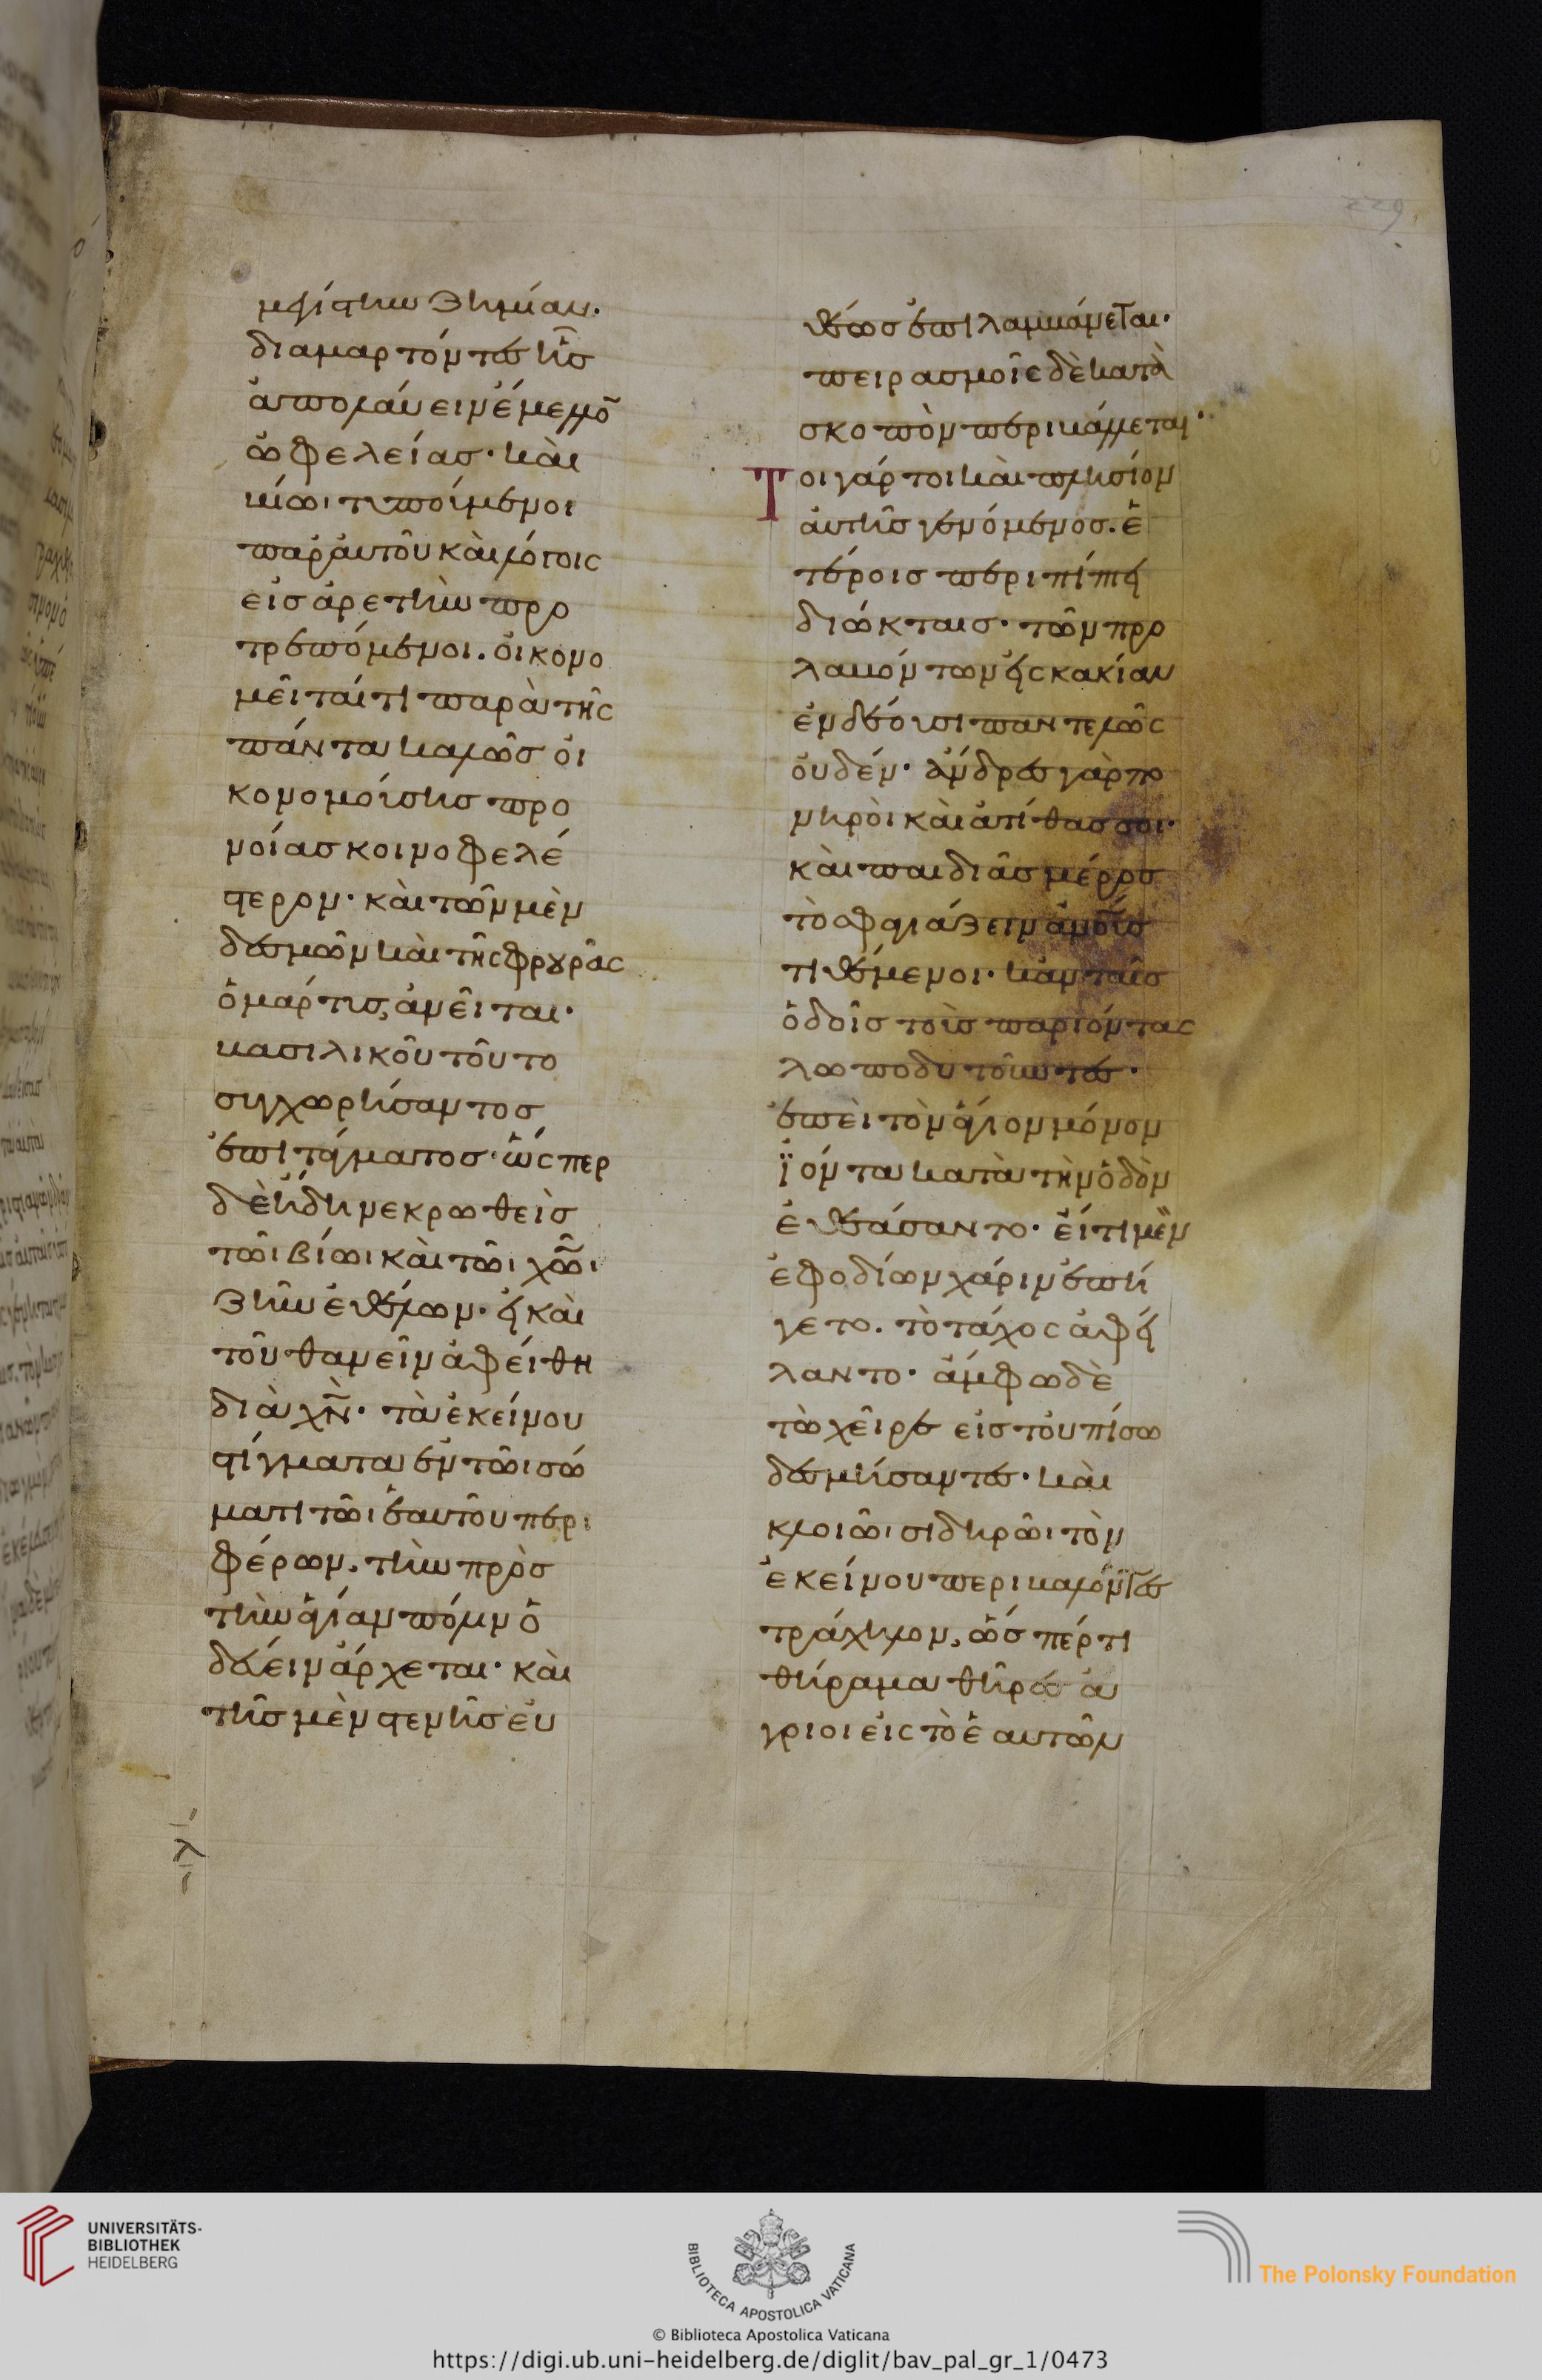 μεγίστην ζημίαν.
διαμαρτόντες ἧς
ἀπολαύειν ἔμελλο̄
ὠφελείας· καὶ
βίωι τυπούμενοι
παρ' αὐτοῦ καὶ λόγοις
εἰς ἀρετὴν προ
τρεπόμενοι. οἰκονο
μεῖταί τι παρὰ τῆς
πάντα καλῶς οἰ
κονομούσης προ
νοίας κοινοφελέ
στερον· καὶ τῶν μὲν
δεσμῶν καὶ τῆς φρουρᾶς
ὁ μάρτυς, ἀνεῖται·
βασιλικοῦ τοῦτο
συγχωρήσαντος
ἐπιτάγματος· ὥσπερ
δὲ ἤδη νεκρωθεὶς
τῶι βίωι καὶ τῶι χ̅ω̅ι
ζῆν ἐθέλων· εἰ καὶ
τοῦ θανεῖν ἀφείθη
διὰ χ̅ν̅· τὰ ἐκείνου
στίγματα ἐν τῶι σώ
ματι τῶι ἑαυτοῦ περι
φέρων, τὴν πρὸς
τὴν ἁγίαν πόλιν ὁ
δεύειν ἄρχεται· καὶ
τῆς μὲν στενῆς εὐ
θέως ἐπιλαμβάνεται·
πειρασμοῖς δὲ κατὰ
σκοπὸν περιβάλλεται·
Τοιγάρτοι καὶ πλησίον
αὐτῆς γενόμενος. ἑ
τέροις περιπίπτει
διώκταις· τῶν προ
λαβόντων εἰς κακίαν
ἐνδέουσι παντελῶς
οὐδέν· ἄνδρες γὰρ πο
νηροὶ καὶ ἀτίθασσοι·
καὶ παιδιᾶς μέρος
τὸ σφαγιάζειν ἀν̅ο̅υς
τιθέμενοι· κἂν ταῖς
ὁδοῖς τοὺς παριόντας
λωποδυτοῦντες·
ἐπεὶ τὸν ἅγιον μόνον
ϊόντα κατὰ τὴν ὁδὸν
ἐθεάσαντο· εἴ τι μὲν
ἐφοδίων χάριν ἐπή
γετο. τὸ τάχος ἀφεί
λαντο· ἄμφω δὲ
τὼ χεῖρε εἰς τοὐπίσω
δεσμήσαντες· καὶ
κλοιῶι σιδηρῶι τὸν
ἐκείνου περιβαλόντες
τράχηλον, ὥσπέρ τι
θήραμα θῆρες ἄ
γριοι εἰς τὸ ἑαυτῶν
229
UNIVERSITÄTS-
BIBLIOTHEK
HEIDELBERG
BIBLIOTECA APOSTOLICA VATICANA
The Polonsky Foundation
© Biblioteca Apostolica Vaticana
https://digi.ub.uni-heidelberg.de/diglit/bav_pal_gr_1/0473